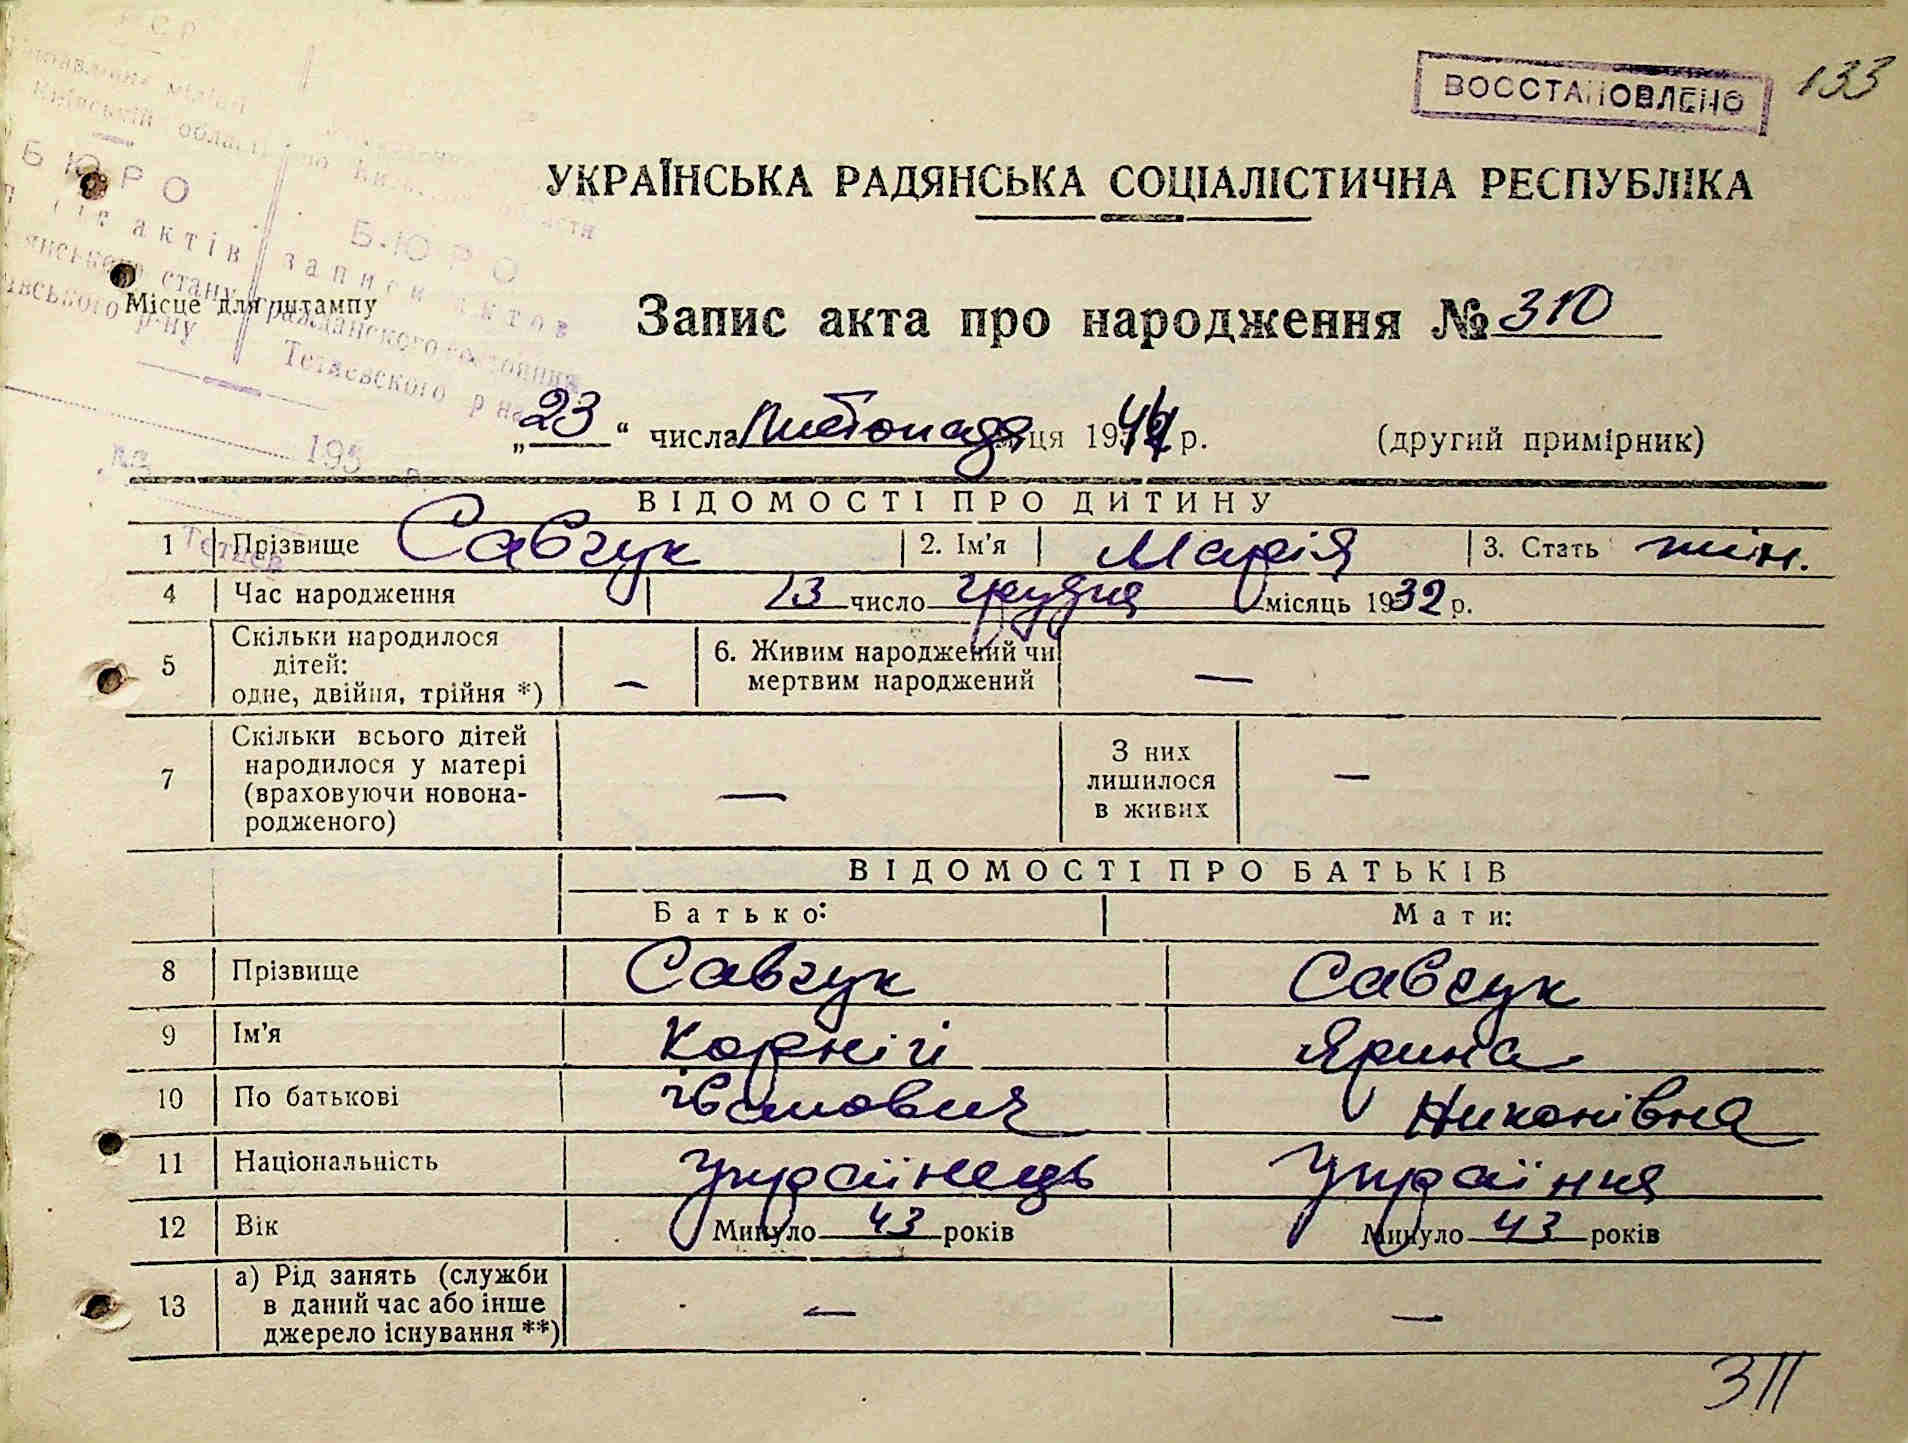 ВОССТАНОВЛЕНО 133
УКРАЇНСЬКА РАДЯНСЬКА СОЦІАЛІСТИЧНА РЕСПУБЛІКА
БЮРО
Б-ЮРО
Київській області
актів
записи актов
гражданского состояния
Тетиевского р на
195
Місце для штампу
Запис акта про народження № 310
„23“ числа Листопада місяця 1944 р. (другий примірник)
ВІДОМОСТІ ПРО ДИТИНУ
1 Прізвище Савчук 2. Ім'я Марія 3. Стать жін.
4 Час народження 13 число грудня місяць 1932 р.
5 Скільки народилося дітей: одне, двійня, трійня *) — 6. Живим народжений чи мертвим народжений —
7 Скільки всього дітей народилося у матері (враховуючи новонародженого) — З них лишилося в живих —
ВІДОМОСТІ ПРО БАТЬКІВ
Батько: Мати:
8 Прізвище Савчук Савчук
9 Ім'я Корній Ярина
10 По батькові Никонівна
11 Національність Українець Українка
12 Вік Минуло 43 років Минуло 43 років
13 а) Рід занять (служби в даний час або інше джерело існування **) — —
311